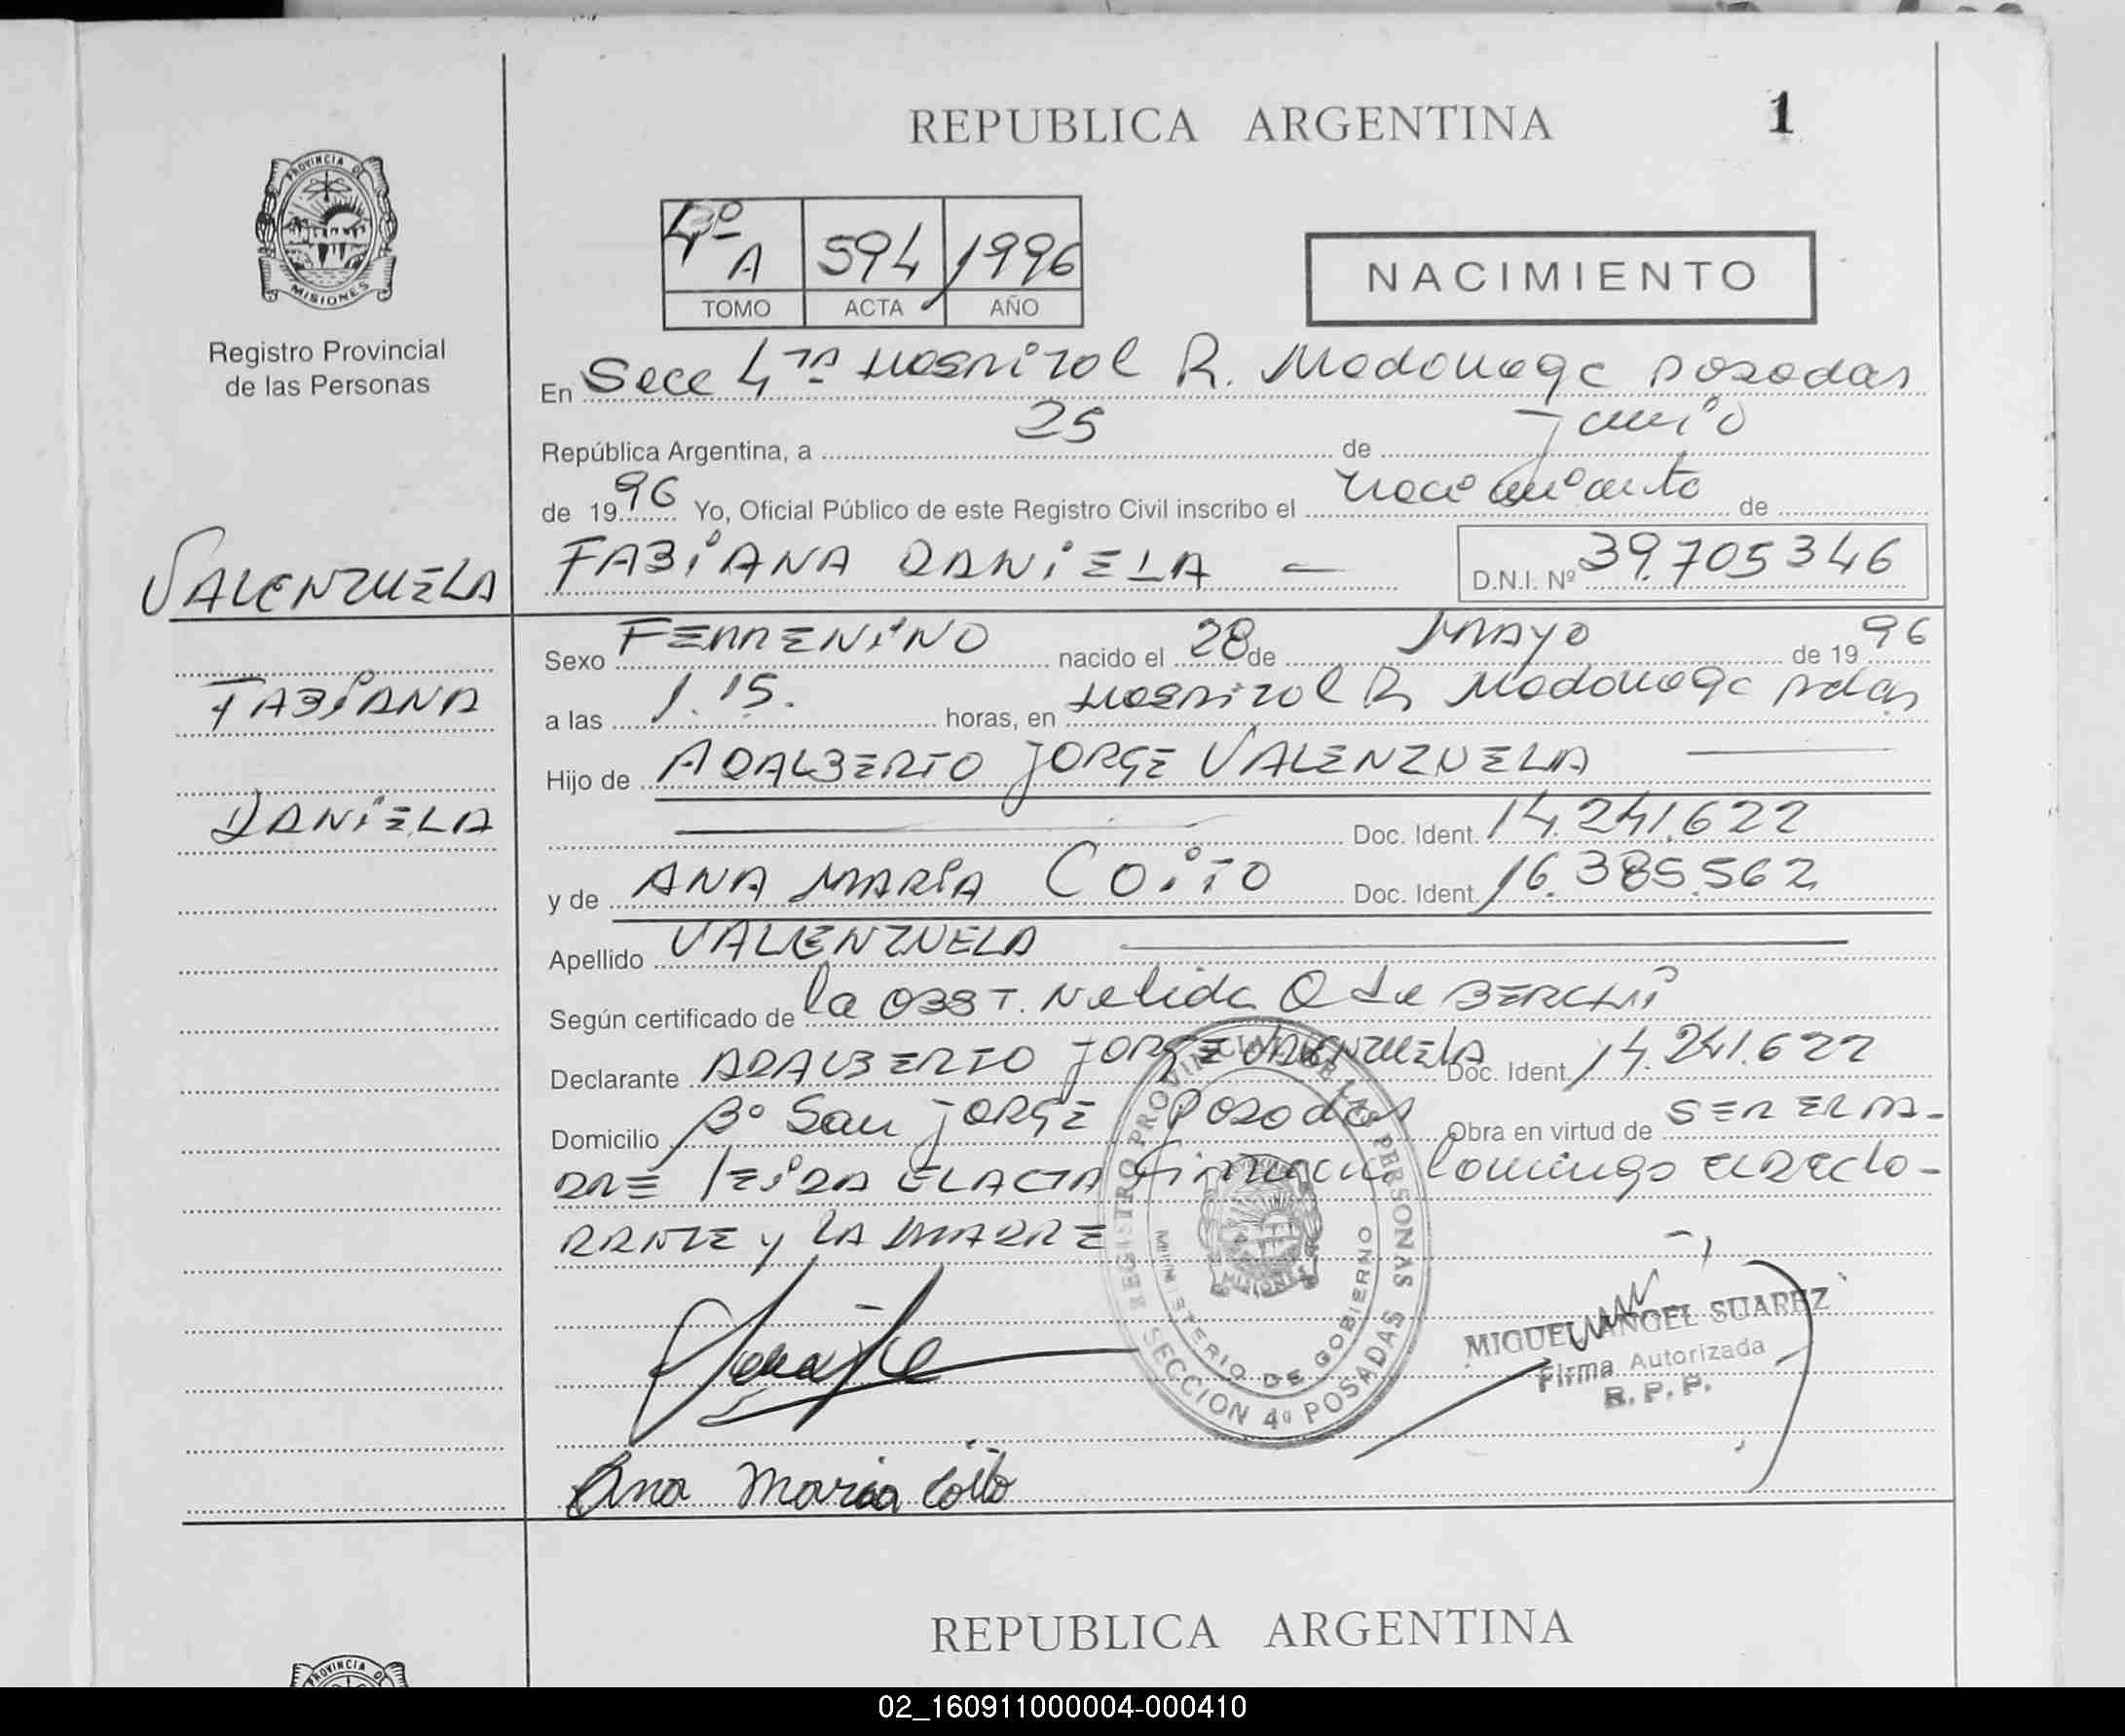 REPUBLICA ARGENTINA 1
PROVINCIA DE
MISIONES
Registro Provincial
de las Personas
4º A 594 1996
TOMO ACTA AÑO
NACIMIENTO
En Secc 4ta Hospital R. Madariaga posadas
República Argentina, a 25 de Junio
de 1996 Yo, Oficial Público de este Registro Civil inscribo el nacimiento de
VALENZUELA
FABIANA DANIELA — D.N.I. Nº 39.705346
Sexo FEMENINO nacido el 28 de MAYO de 1996
FABIANA
a las 1.15. horas, en Hospital R Madariaga pdas
Hijo de ADALBERTO JORGE VALENZUELA
DANIELA
Doc. Ident. 14.241.622
y de ANA MARÍA COITO Doc. Ident. 16.385.562
Apellido VALENZUELA
Según certificado de la OBST. Nelida Q de
Declarante ADALBERTO JORGE VALENZUELA Doc. Ident. 14.241.622
Domicilio Bº San JORGE Posadas Obra en virtud de SER EL PA-
DRE LEIDA EL ACTA firman conmigo el Decla-
RANTE y LA MADRE
REGISTRO PROVINCIAL DE LAS PERSONAS
MINISTERIO DE GOBIERNO
MISIONES
SECCION 4º POSADAS
MIGUEL ANGEL SUAREZ
Firma Autorizada
R. P. P.
Ana Maria Coito
REPUBLICA ARGENTINA
PROVINCIA DE
02_160911000004-000410